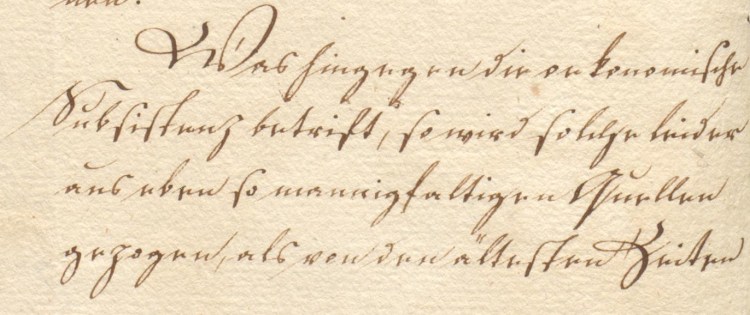 nen.
Was hingegen die oekonomische
Subsistenz betrift, so wird solche leider
aus eben so mannigfaltigen Quellen
gezogen, als von den ältesten Zeiten